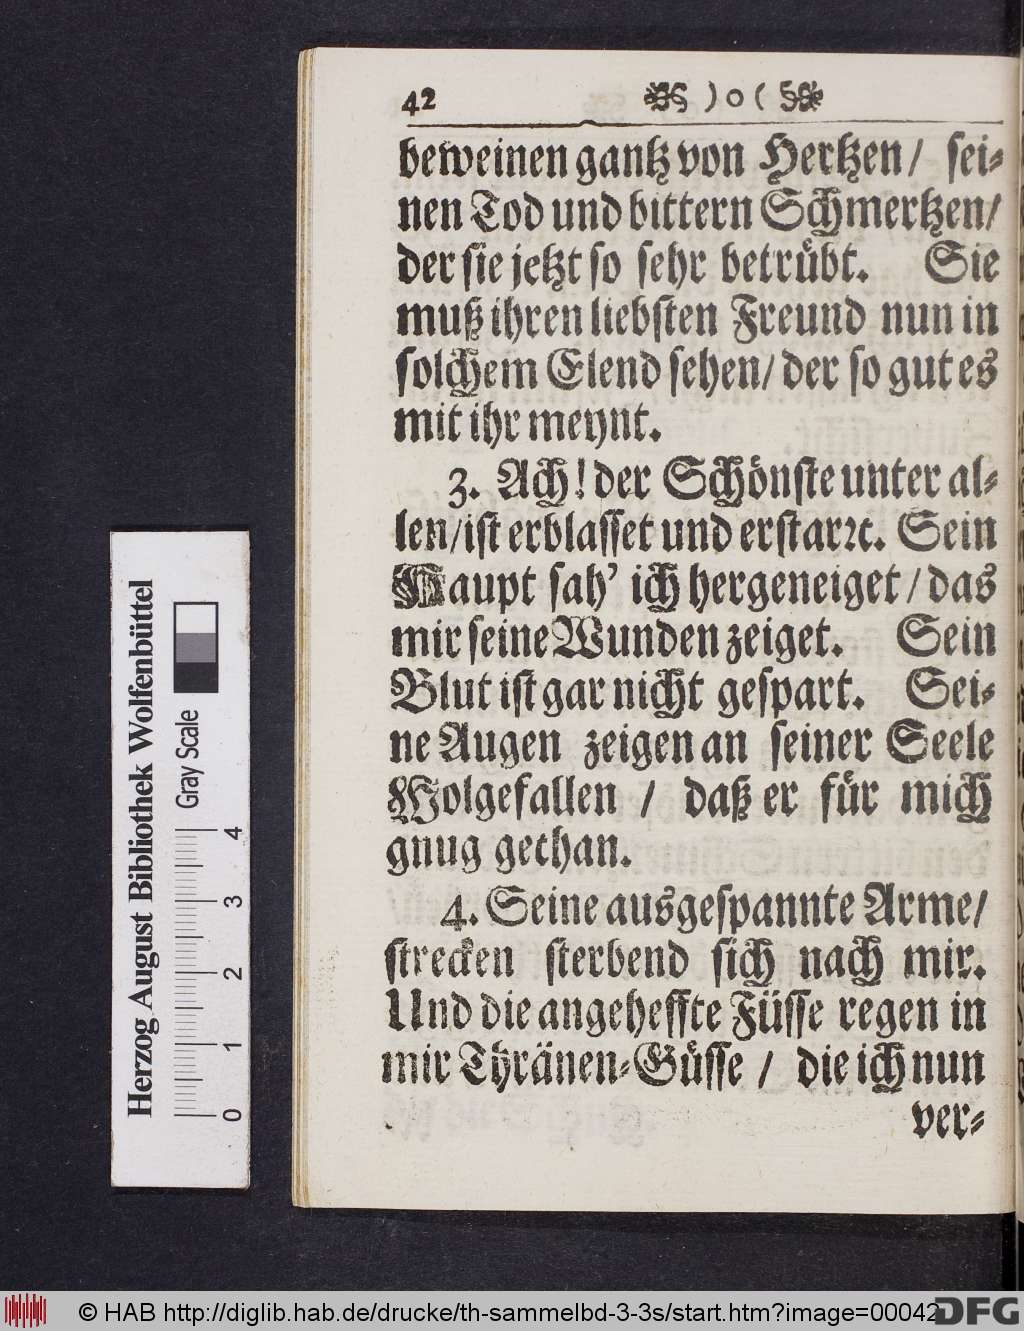 42 )o(
beweinen gantz von Hertzen/ sei-
nen Tod und bittern Schmertzen/
der sie jetzt so sehr betrübt. Sie
muß ihren liebsten Freund nun in
solchem Elend sehen/ der so gut es
mit ihr meynt.
3. Ach! der Schönste unter al-
len/ist erblasset und erstarrt. Sein
Haupt sah' ich hergeneiget/das
mir seine Wunden zeiget. Sein
Blut ist gar nicht gespart. Sei-
ne Augen zeigen an seiner Seele
Wolgefallen / daß er für mich
gnug gethan.
4. Seine ausgespannte Arme/
strecken sterbend sich nach mir.
Und die angeheffte Füsse regen in
mir Thränen-Güsse / die ich nun
ver-
Herzog August Bibliothek Wolfenbüttel
Gray Scale
0 1 2 3 4
© HAB http://diglib.hab.de/drucke/th-sammelbd-3-3s/start.htm?image=00042
DFG